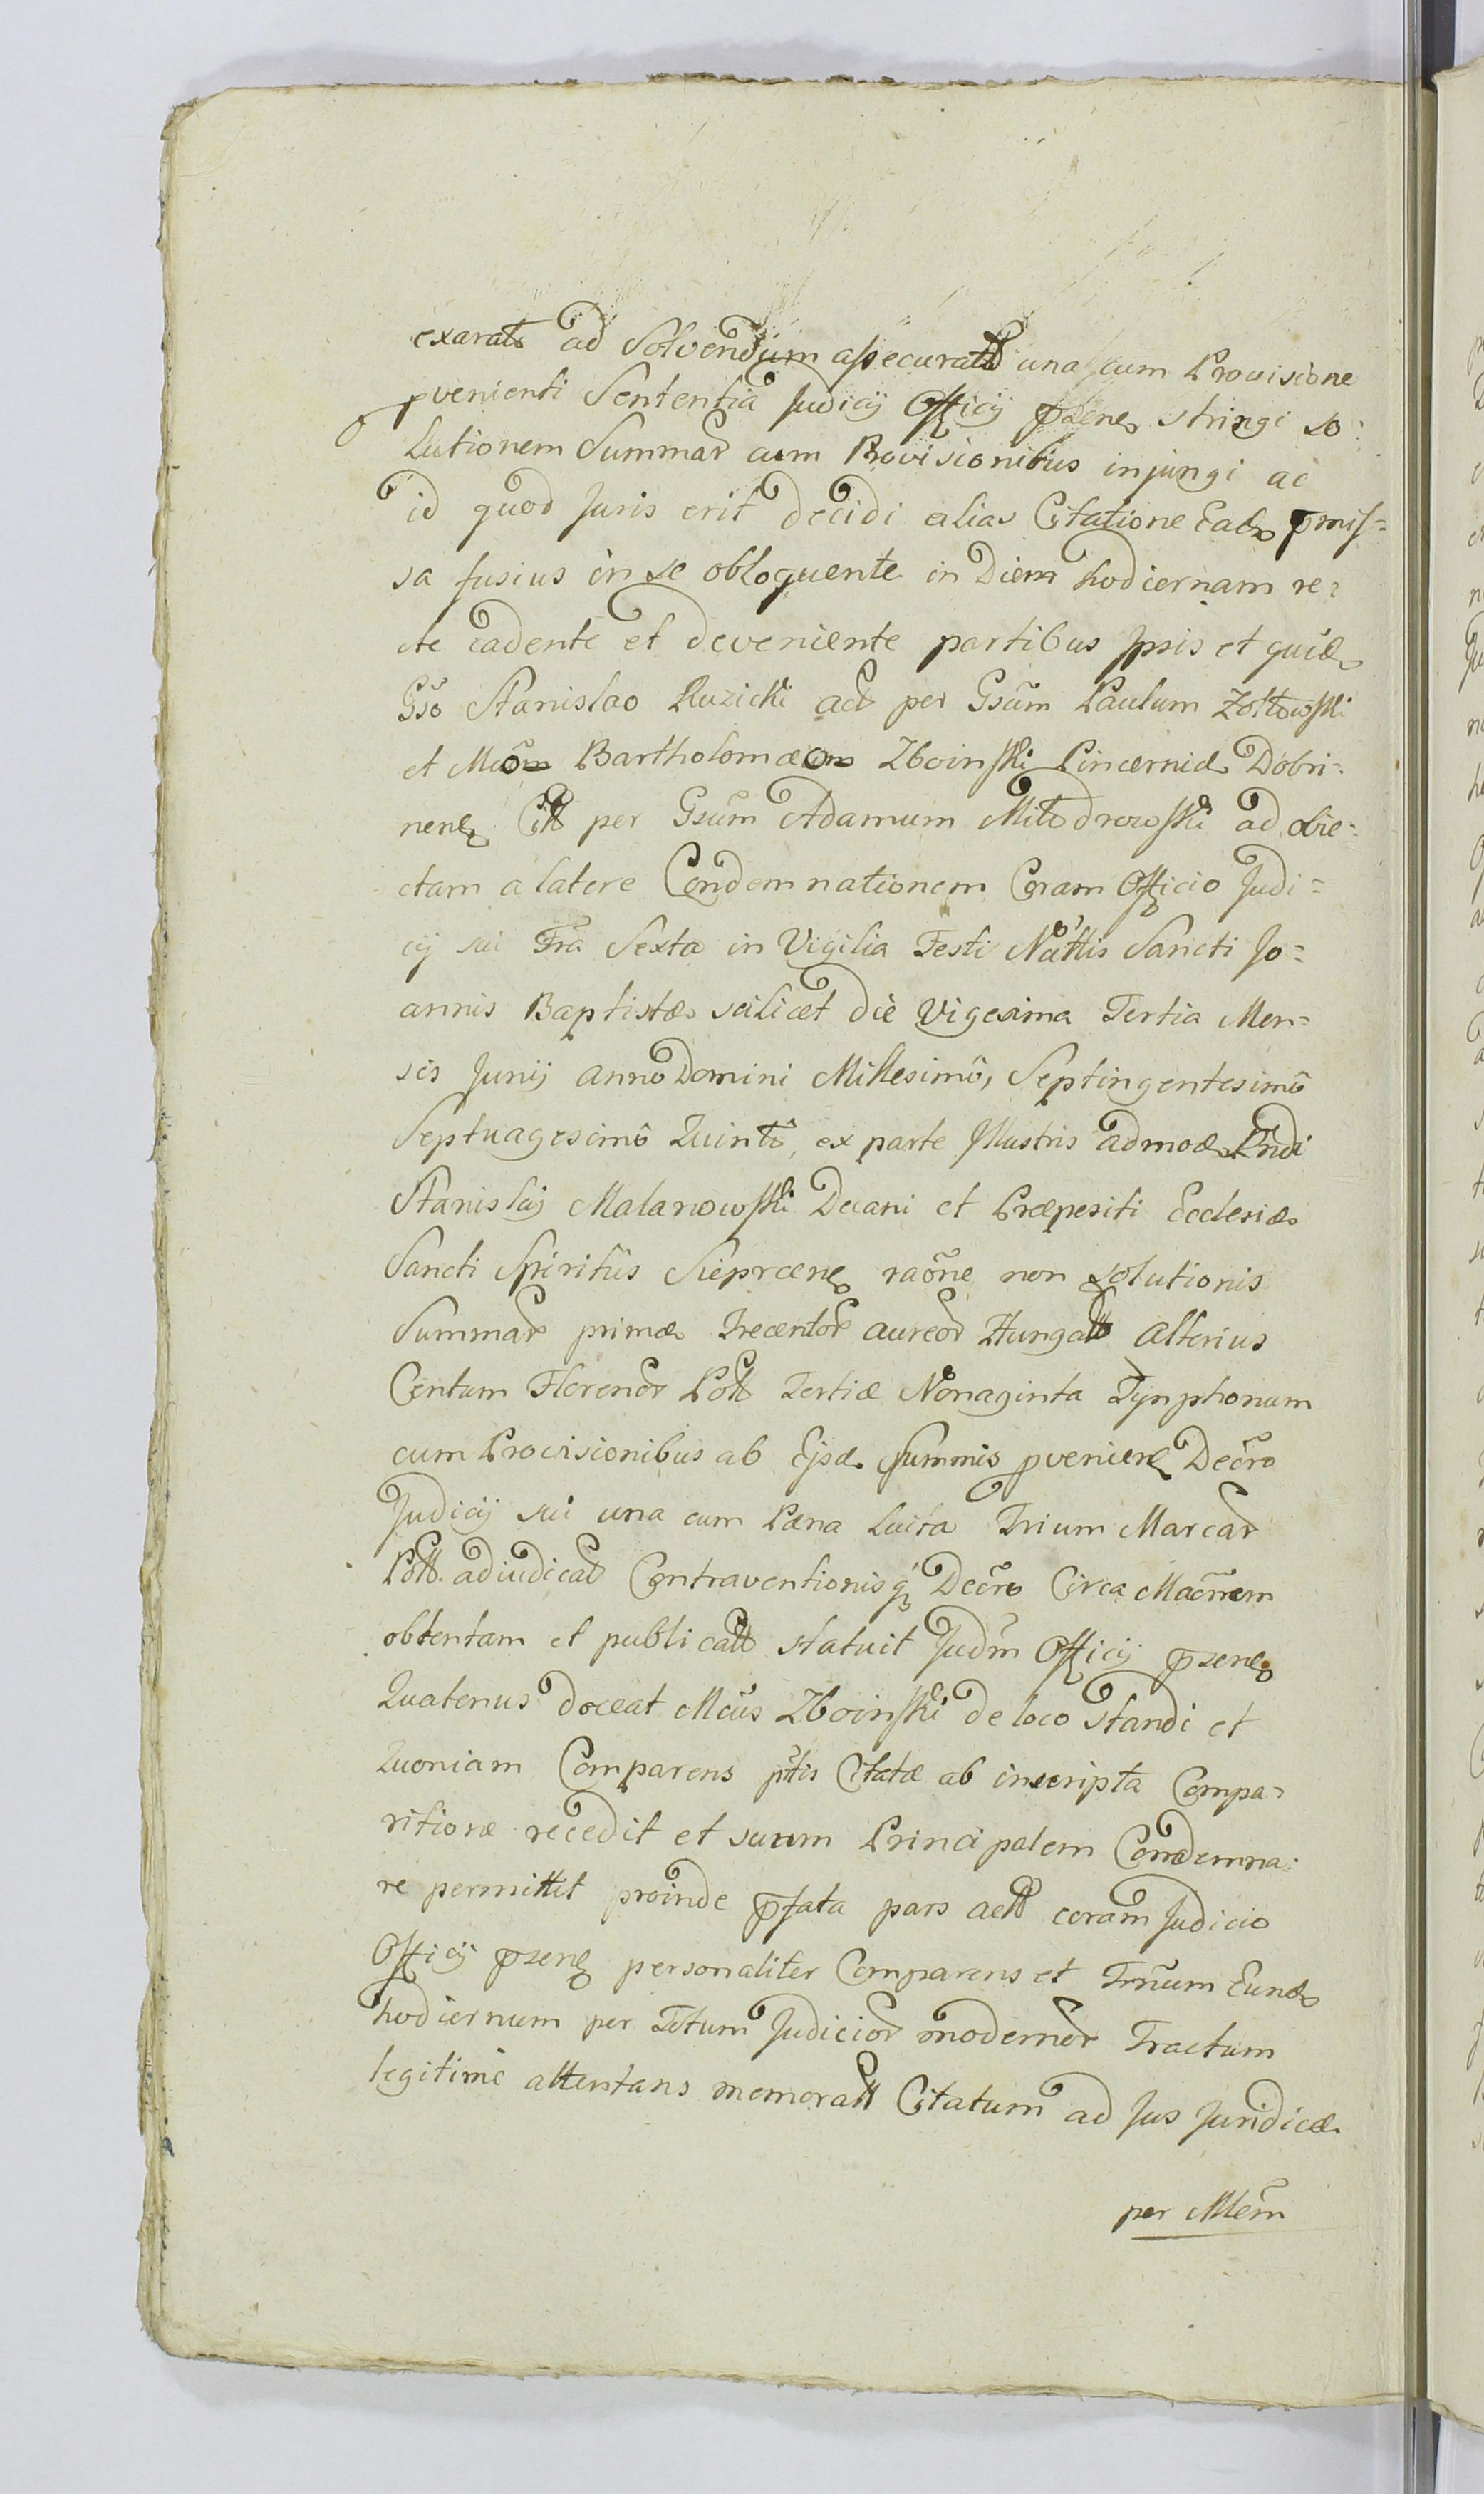 exarat ad Solvendum assecurat una cum Provisione
pvenienti Sententia Judicij Officij pzene stringi so:
lutionem Summar cum Provisionibus injungi ac
id quod Juris erit decidi alias Citatione Ead pmis=
sa fusius in se obloquente in Diem hodiernam re=
cte cadente et deveniente partibus Ipsis et quid
Gso Stanislao Ruzicki act per Gsum Paulum Zołtowski
et Mcom Bartholomaeom Zboinski Pincernid Dobri=
nens Citt per Gsum Adamum Miłodrowski ad obie=
ctam a latere Condemnationem Coram Officio Judi=
cij sui Fra Sexta in Vigilia Festi Nattis Sancti Jo=
annis Baptistae scilicet die Vigesima Tertia Men=
sis Junij anno Domini Millesimô, Septingentesimô
Septuagesimô Quintô, ex parte Illustris admod Rndi
Stanislaj Malanowski Decani et Praepositi Ecclesiae
Sancti Spiritûs Sieprcens raõne non solutionis
Summar primae Trecentor aureor Hungatt alterius
Centum Florenor Poll Tertiae Nonaginta Tynphonum
cum Provisionibus ab Ejsd Summis pvenien Decro
Judicij sui una cum Paena Luita Trium Marcar
Poll. adiudicat Contraventionisq Decro Circa Macõnem
obtentam et publicatt statuit Judm Officij pzens
Quatenus doceat Mcus Zboinski de loco standi et
Quoniam Comparens ptis Citatae ab inscripta Compa=
ritione recedit et suum Principalem Condemna:
re permittit proinde pfata pars actt coram Judicio
Officij pzens personaliter Comparens et Trnum Eund
hodiernum per Totum Judicior modernor Tractum
legitimè attentans memoratt Citatum ad Jus Juridice
per Mlem